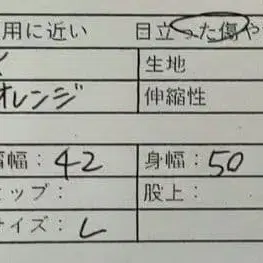 用に近い 目立った傷や
生地
オレンジ 伸縮性
肩幅：42 身幅：50
ヒップ： 股上：
サイズ：L